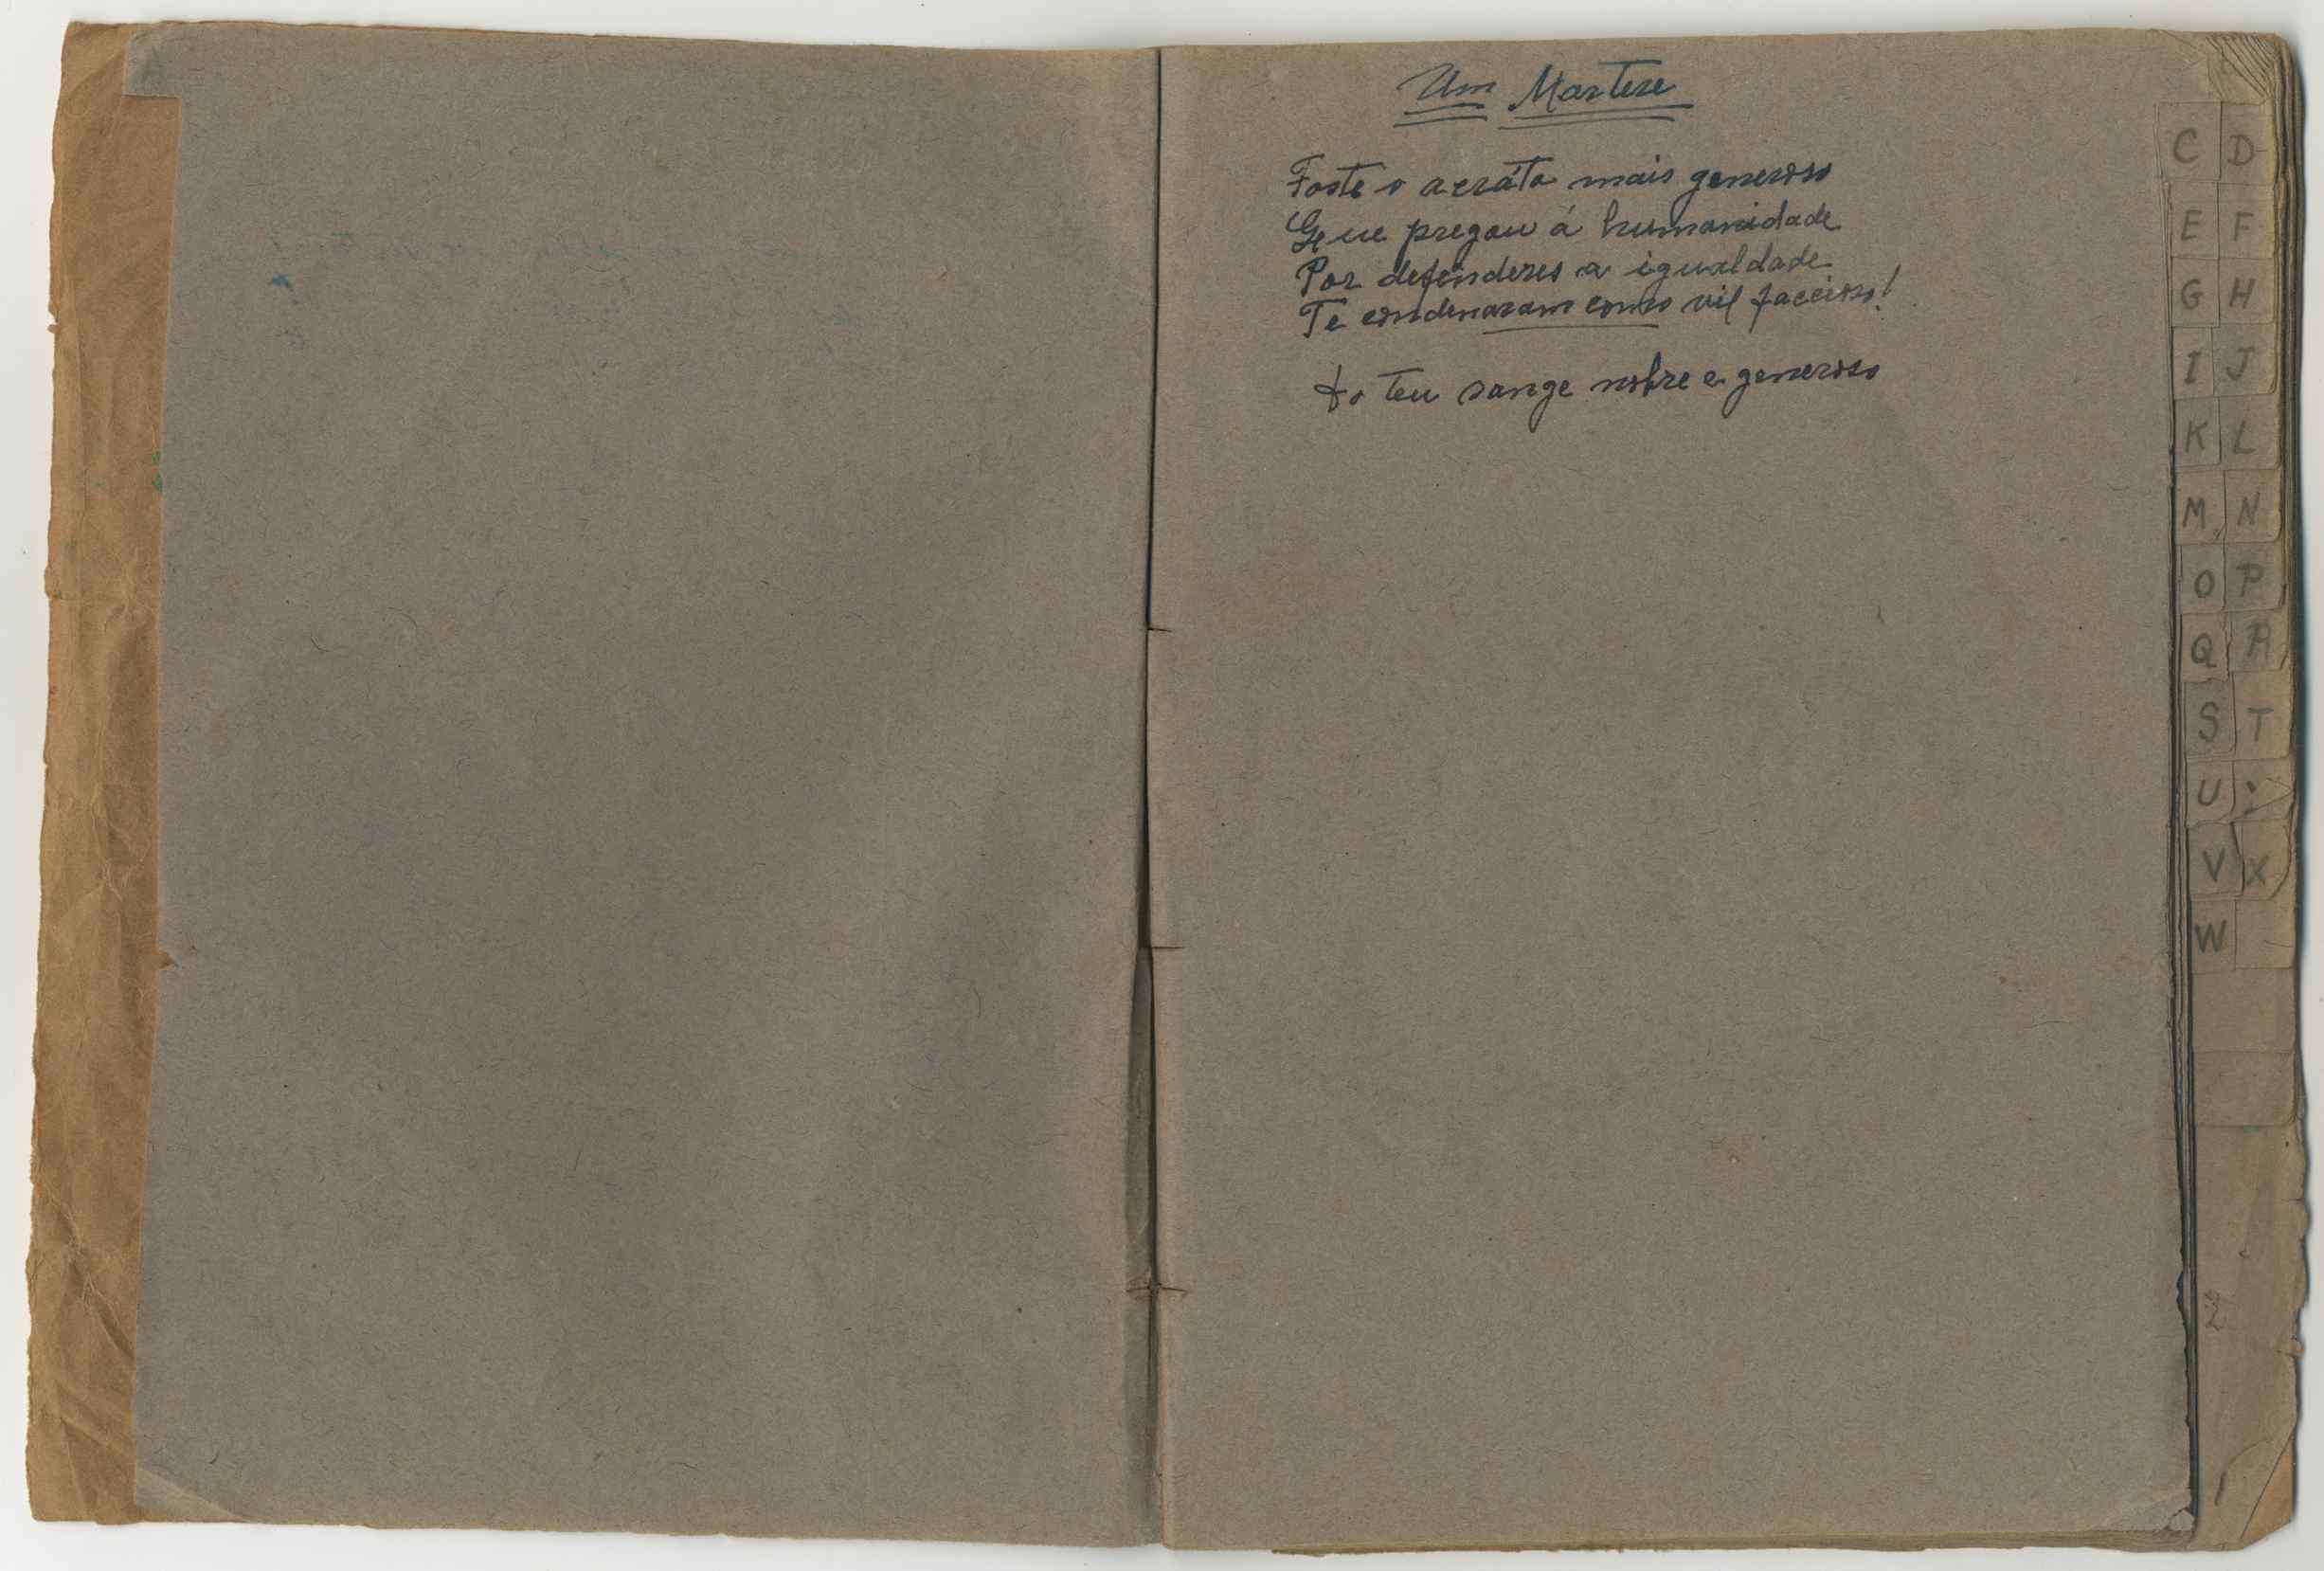 Um Martere
Foste o acráta mais generoso
Que pregou á humanidade
Por defenderes a igualdade
Te condenaram como vil faccioso!
do teu sange nobre e generoso
C D
E F
G H
I J
K L
M N
O P
Q R
S T
U
V X
W
2